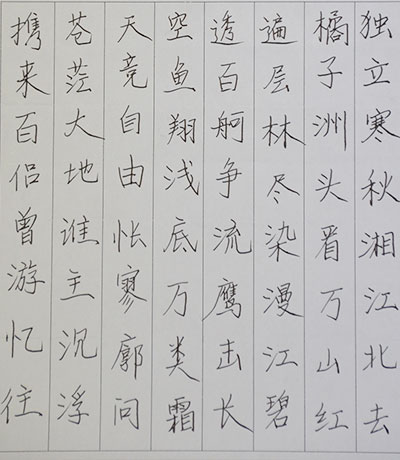 独立寒秋湘江北去
橘子洲头看万山红
遍层林尽染漫江碧
透百舸争流鹰击长
空鱼翔浅底万类霜
天竞自由怅寥廓问
苍茫大地谁主沉浮
携来百侣曾游忆往